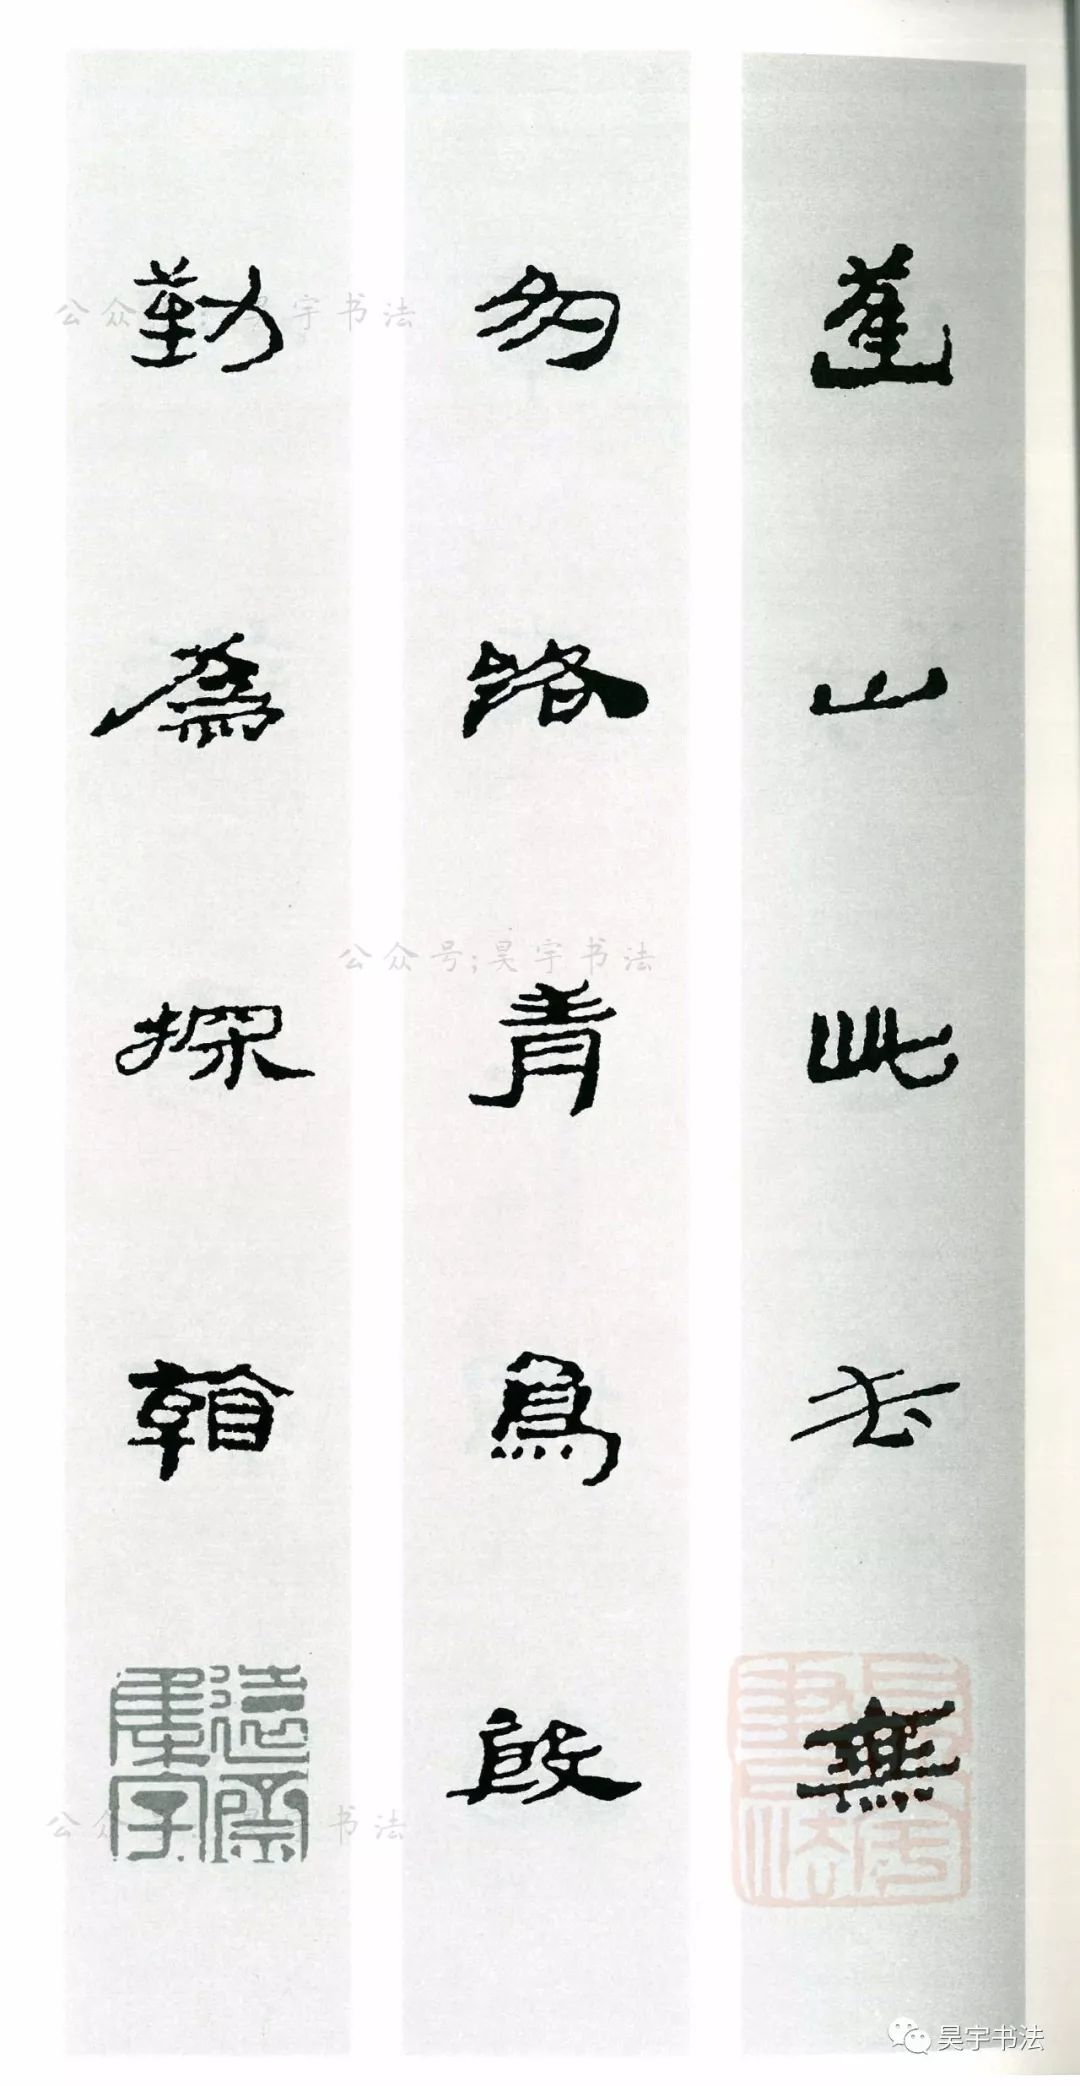 蓬山此去無
多路青鳥殷
勤爲探看
遠齋集字
公众号:昊宇书法
公众号:昊宇书法
公众号:昊宇书法
昊宇书法